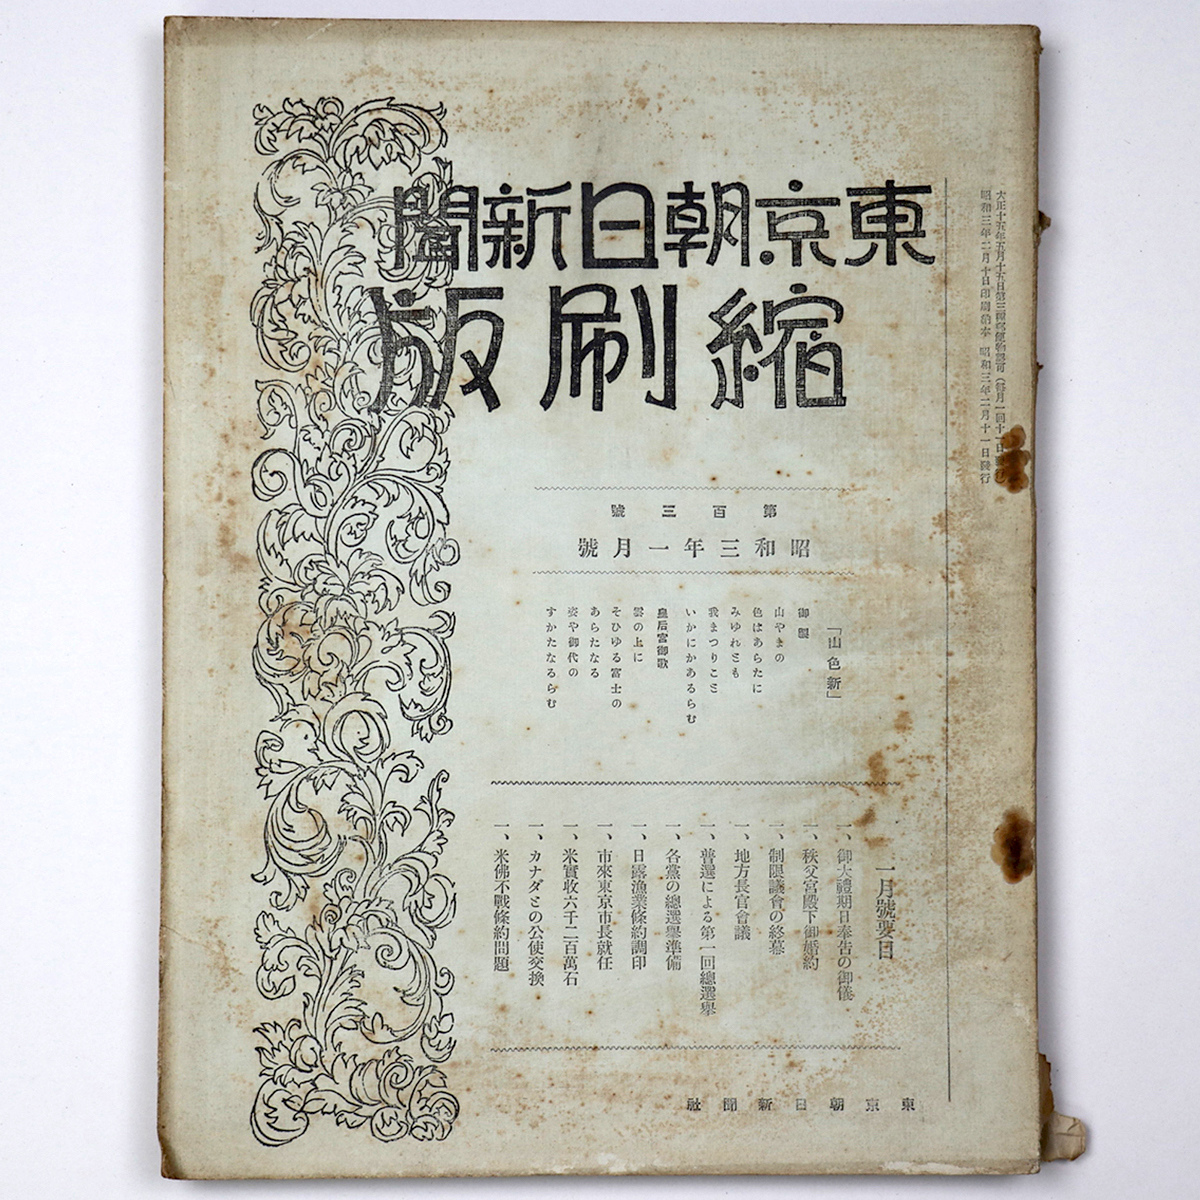 大正十五年五月十五日第三種郵便物認可(毎月一回十一日發行)
昭和三年二月十日印刷納本 昭和三年二月十一日發行
東京朝日新聞
縮刷版
第百三號
昭和三年一月號
「山色新」
御製
山やまの
色はあらたに
みゆれども
我まつりごと
いかにかあるらむ
皇后宮御歌
雲の上に
そひゆる富士の
あらたなる
姿や御代の
すかたなるらむ
一月號要目
一、御大禮期日奉告の御儀
一、秩父宮殿下御婚約
一、制限議會の終幕
一、地方長官會議
一、普選による第一回總選擧
一、各黨の總選擧準備
一、日露漁業條約調印
一、市來東京市長就任
一、米實收六千二百萬石
一、カナダとの公使交換
一、米佛不戰條約問題
東京朝日新聞社